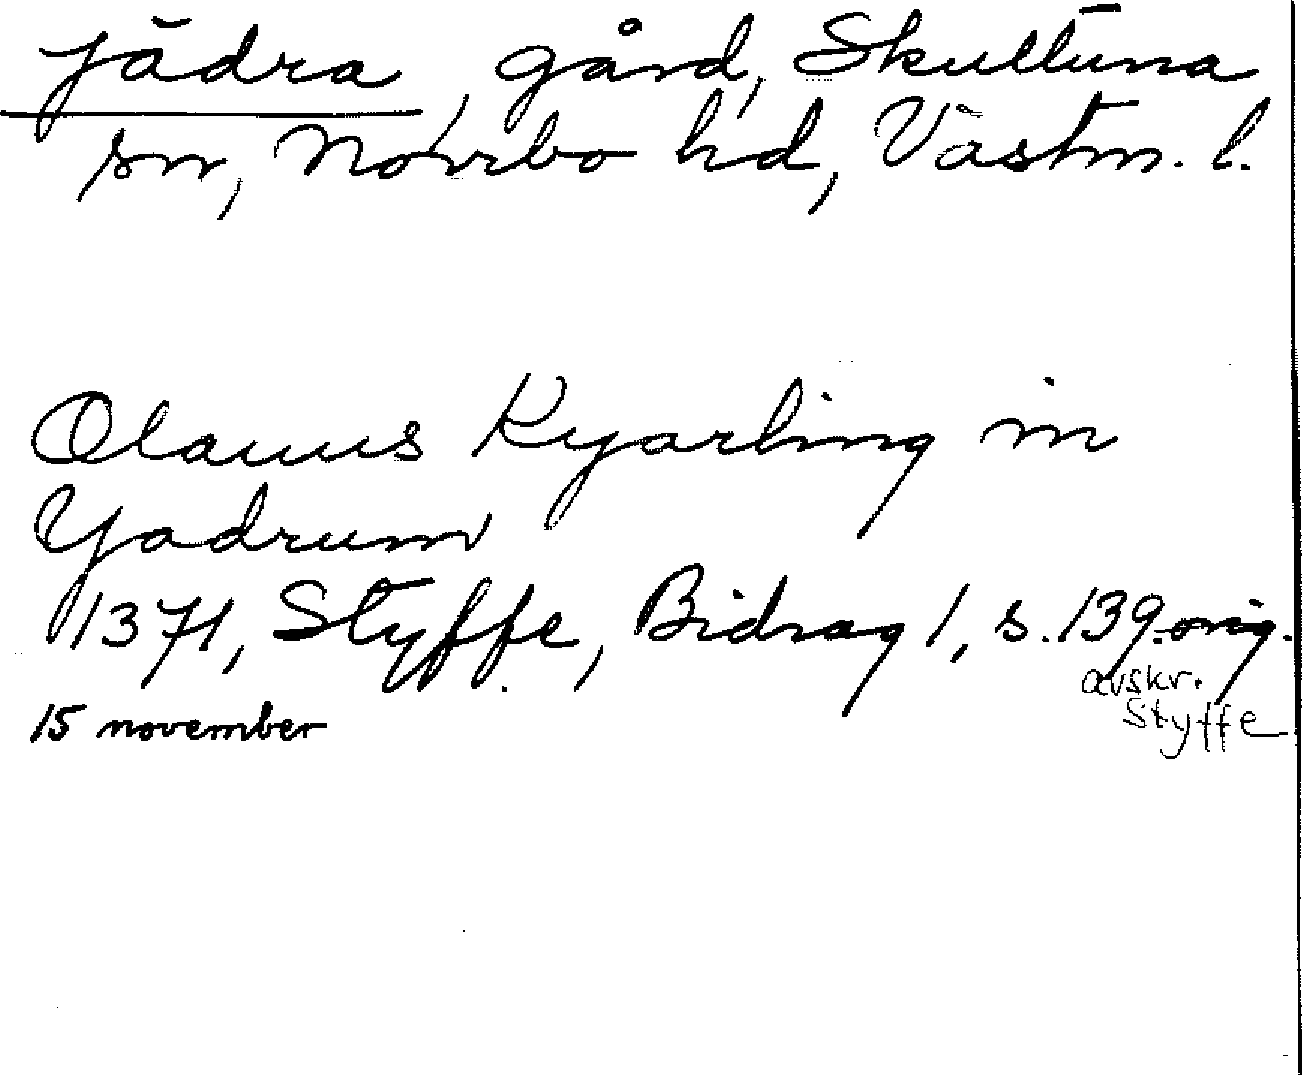 Jädra, gård, Skultuna
sn, Norrbo hd, Västm. l.
Olauus Kyarling in
Yadrum
1371, Styffe, Bidrag 1, s. 139. orig.
avskr.
Styffe
15 november